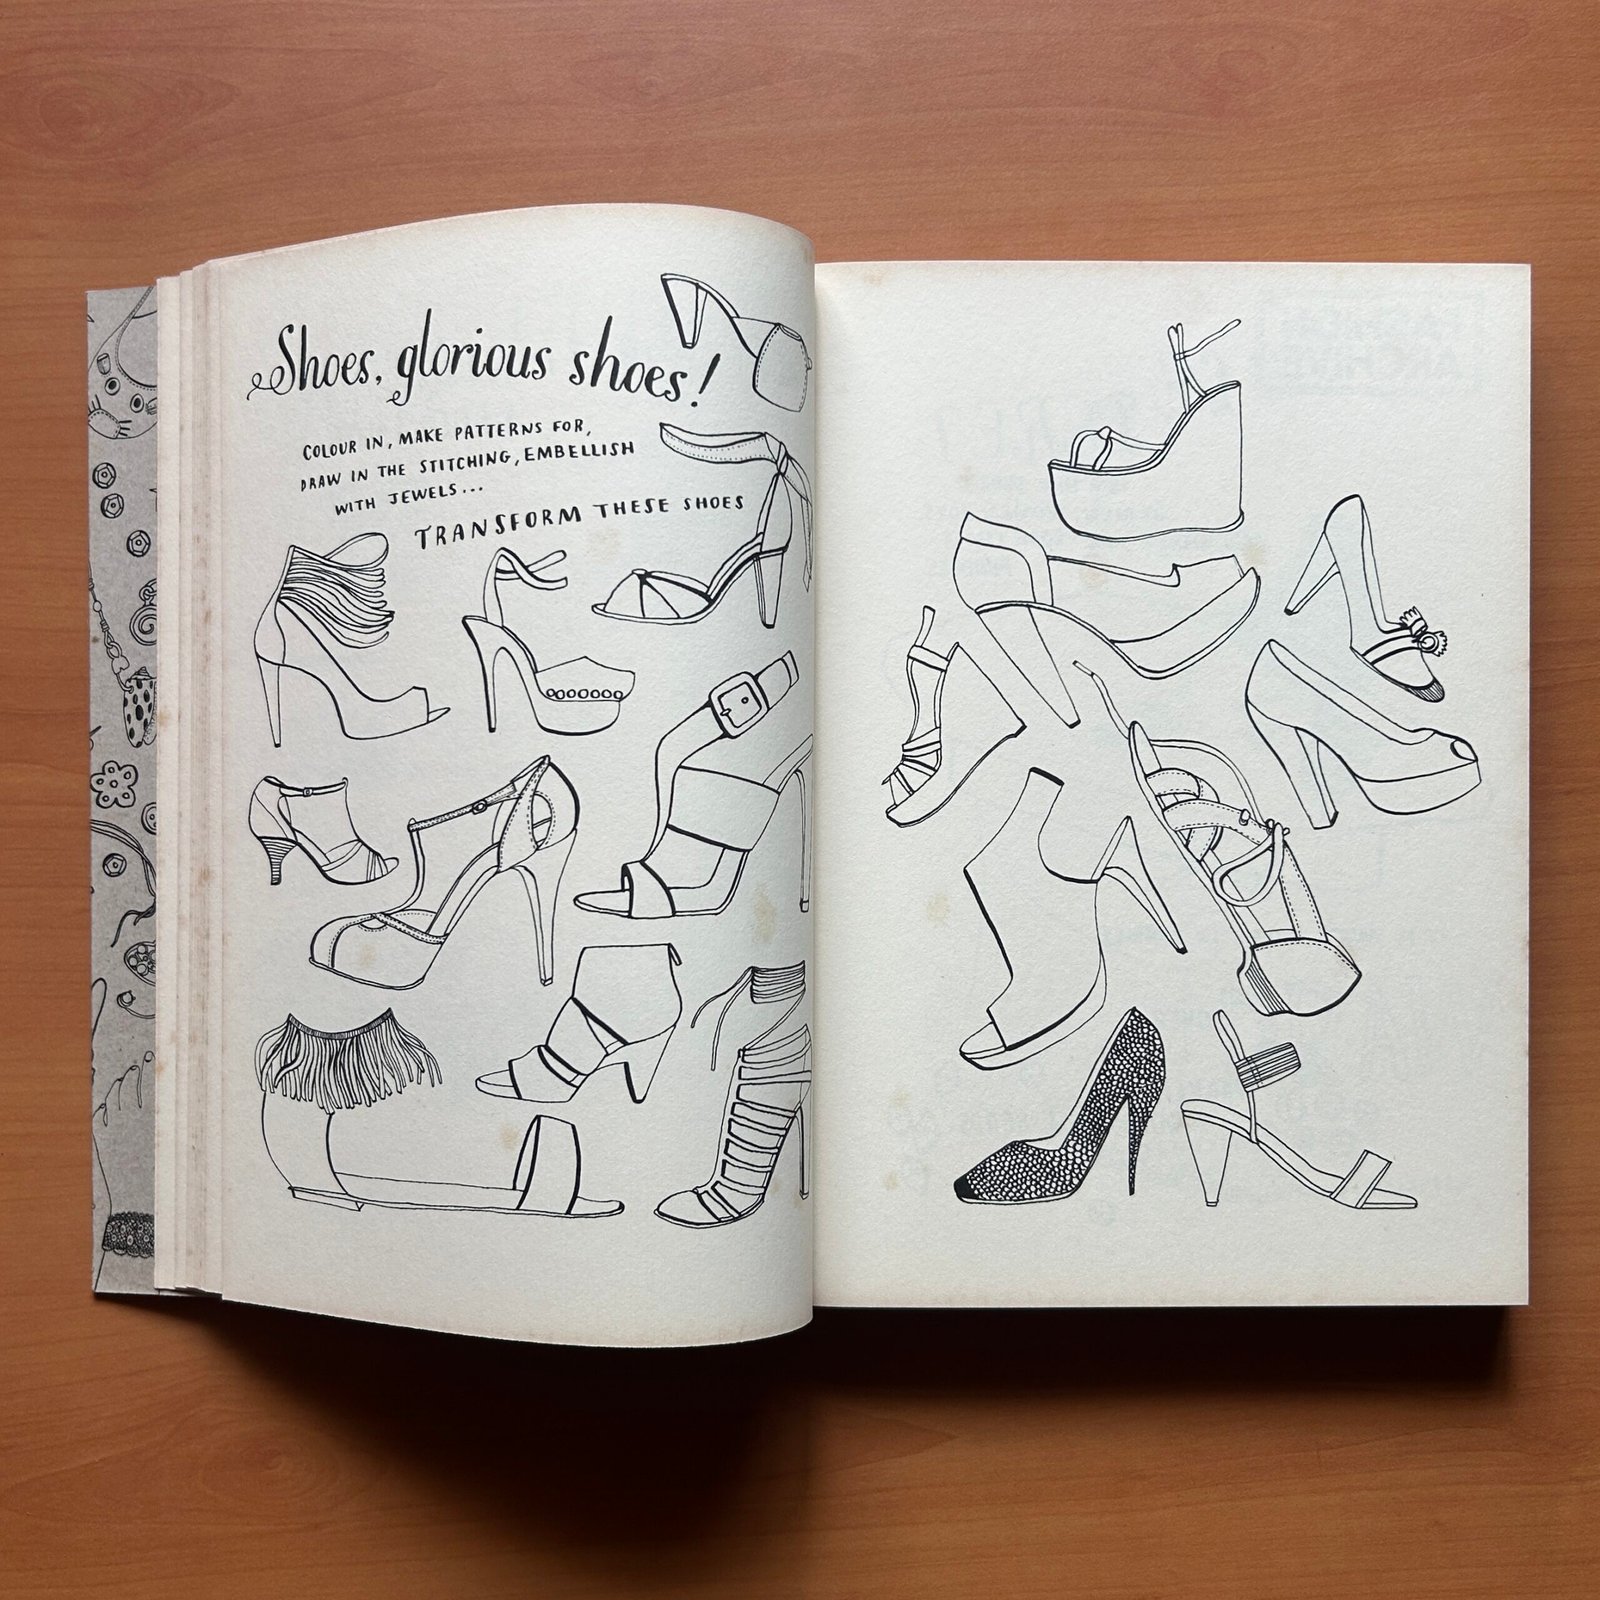 Shoes, glorious shoes!
COLOUR IN, MAKE PATTERNS FOR,
DRAW IN THE STITCHING, EMBELLISH
WITH JEWELS...
TRANSFORM THESE SHOES